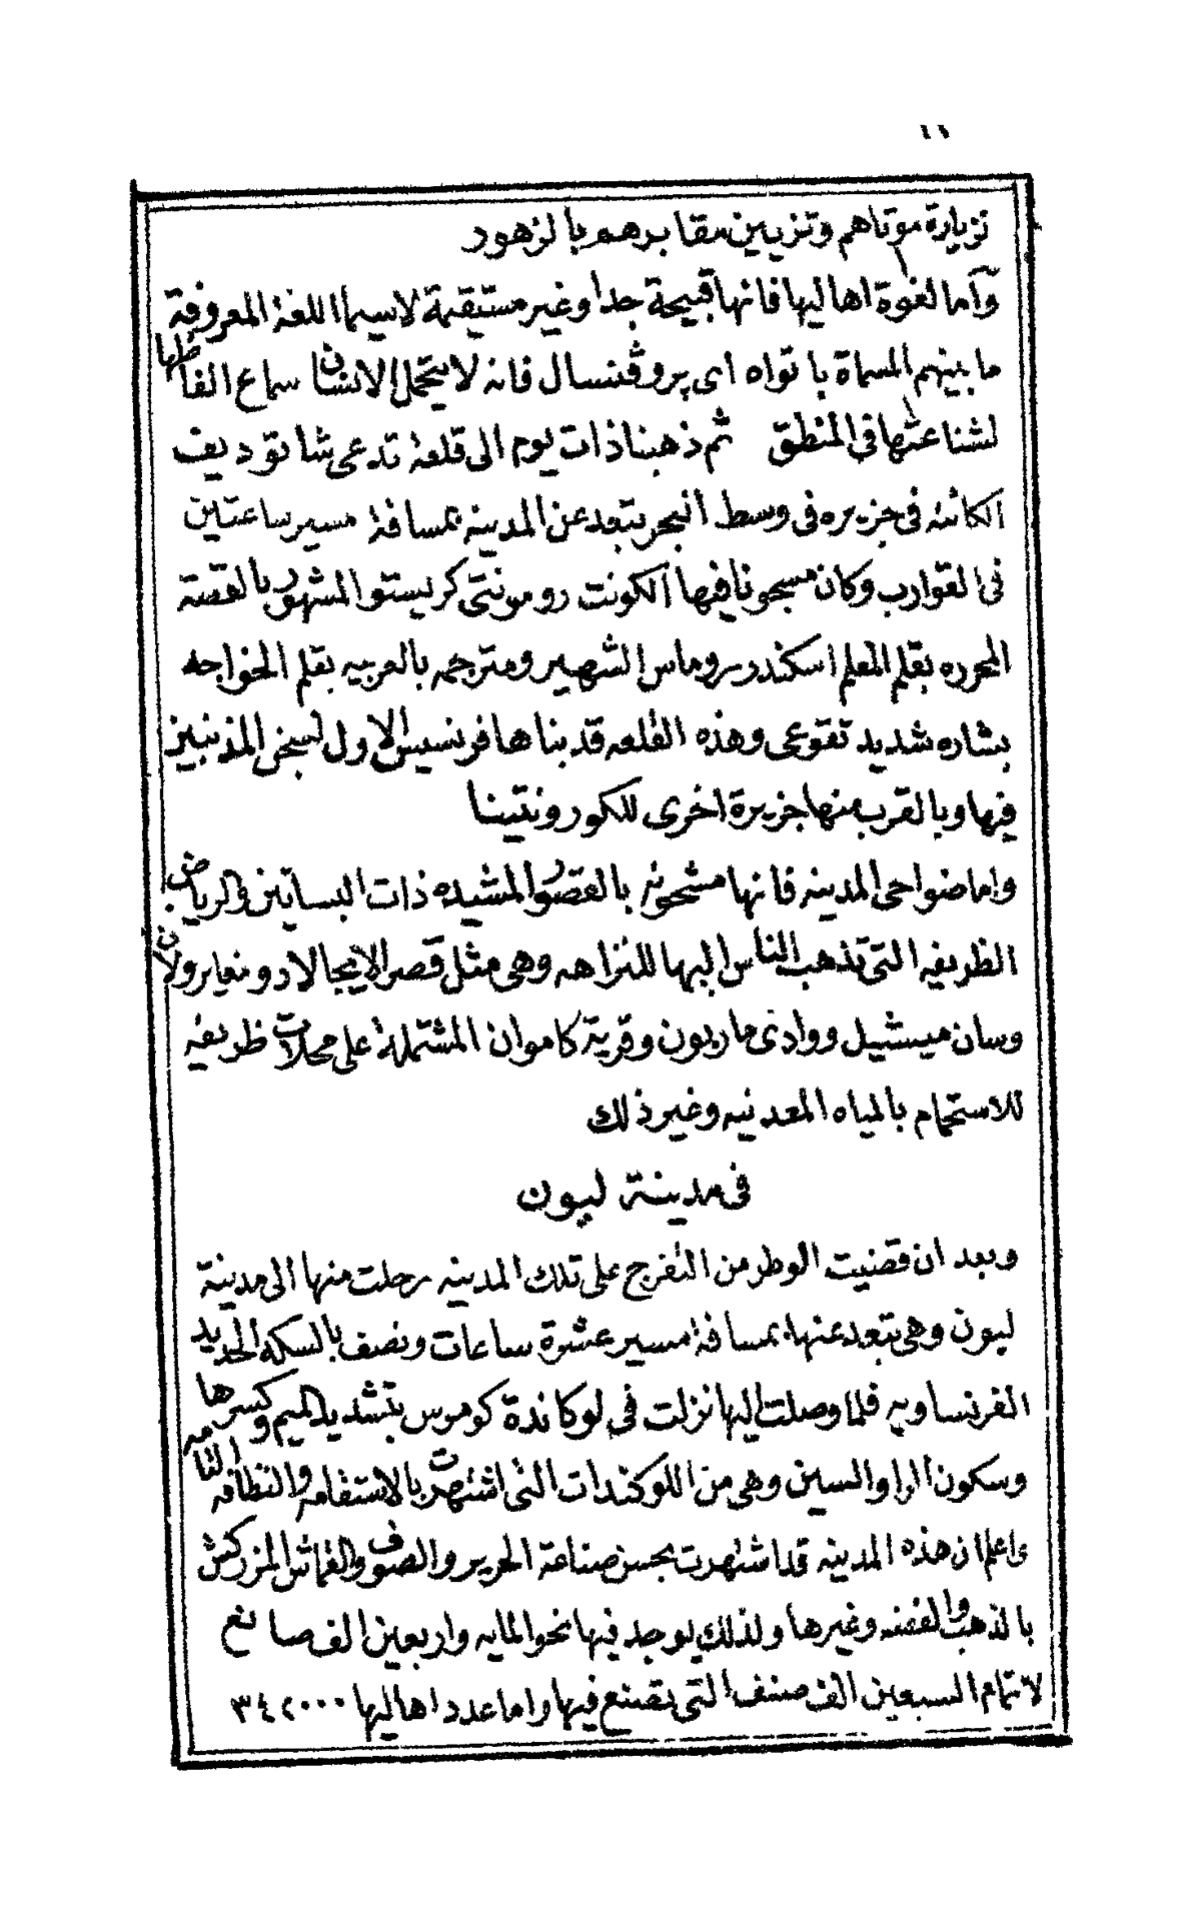 ١٦
تزيارة موتاهم وتزيين مقابرهم بالزهور
وأما لغوة اهاليها فانها قبيحة جدا وغير مستيقمة لاسيما اللغة المعروفة
ما بينهم المسماة باتواه اى پروڤنسال فانه لا يتحمل الانسان سماع الفاظها
لشناعتها فى المنطق ثم ذهبنا ذات يوم الى قلعة تدعى شاتوديف
الكائنه فى جزيره فى وسط البحر تبعد عن المدينه بمسافة مسير ساعتين
فى القوارب وكان مسجونا فيها الكونت رومونتى كريستو المشهور بالقصة
المحرره بقلم المعلم اسكندر روماس الشهير ومترجمه بالعربيه بقلم الخواجه
بشاره شديد تقوعى وهذه القلعه قد بناها فرنسيس الاول لسجن المذنبين
فيها وبالقرب منها جزيرة اخرى للكورونتينا
واما ضواحى المدينه فانها مشحونه بالقصور المشيده ذات البساتين والرياض
الظريفه التى تذهب الناس اليها للنزاهه وهى مثل قصر الايجالادو ومغاير ولان
وسان ميشيل ووادى ماربون وقرية كاموان المشتملة على محلات ظريفه
للاستحمام بالمياه المعدنيه وغير ذلك
فى مدينة ليون
وبعد ان قضيت الوطر من التفرج على تلك المدينه رحلت منها الى مدينة
ليون وهى تبعد عنها بمسافة مسير عشرة ساعات ونصف بالسكه الحديد
الفرنساويه فلما وصلت اليها نزلت فى لوكاندة كوموس بتشديد الميم وكسرها
وسكون الراء والسين وهى من اللوكندات التى اشتهرت بالاستقامه والنظافه التامه
واعلم ان هذه المدينه قد اشتهرت بحسن صناعة الحرير والصوف والقماش المزركش
بالذهب والفضه وغيرها ولذلك يوجد فيها نحو المايه واربعين الف صانع
لاتمام السبعين الف صنف التى تصنع فيها واما عدد اهاليها ٣٤٢٠٠٠